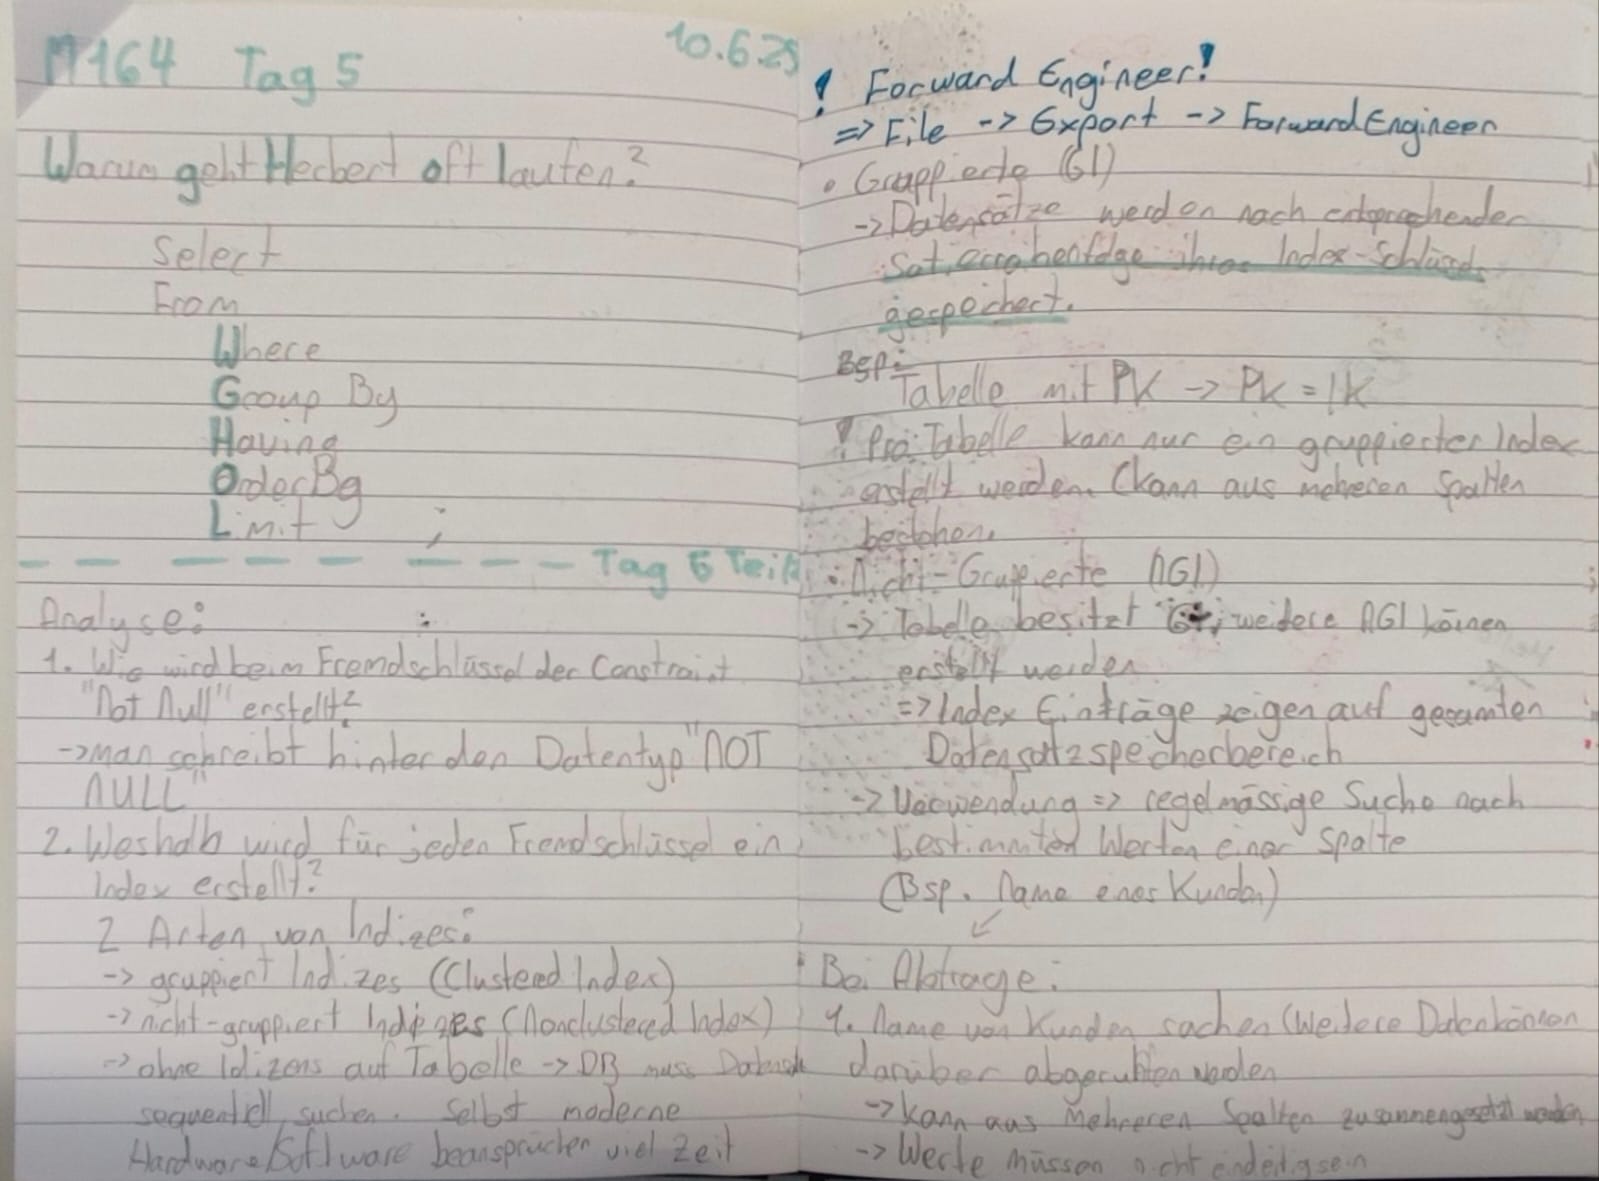 M164 Tag 5 10.6.25
Warum geht Herbert oft laufen?
Select
From
Where
Group By
Having
Order By
Limit ;
Tag 5 Teil 2
Analyse:
1. Wie wird beim Fremdschlüssel der Constraint
"Not Null" erstellt?
-> man schreibt hinter den Datentyp "NOT
NULL"
2. Weshalb wird für jeden Fremdschlüssel ein
Index erstellt?
2 Arten von Indizes:
-> gruppiert Indizes (Clustered Index)
-> nicht-gruppiert Indizes (Nonclustered Index)
-> ohne Idizens auf Tabelle -> DB muss
sequentiell suchen. Selbst moderne
Hardware/Software beansprüchen viel Zeit
! Forward Engineer!
=> File -> Export -> Forward Engineer
• Gruppierte (GI)
-> Datensätze werden nach entsprechender
ihres Index-Schlüssels
gespeichert.
Bsp:
Tabelle mit PK -> PK = IK
! Pro Tabelle kann nur ein gruppierter Index
erstellt werden. (kann aus mehreren Spalten
bestehen.
• Nicht-Gruppierte (NGI)
-> Tabelle besitzt GI, weitere NGI könen
erstellt werden
=> Index Einträge zeigen auf gesamten
Datensatzspeicherbereich
-> Verwendung => regelmässige Suche nach
bestimmten Werten einer Spalte
(Bsp. Name enes Kunden)
• Bei Abfrage:
1. Name von Kunden suchen (Weitere Daten können
darüber abgerufen werden
-> kann aus Mehreren Spalten zusammengesetzt werden
-> Werte müssen nicht eindeitig sein